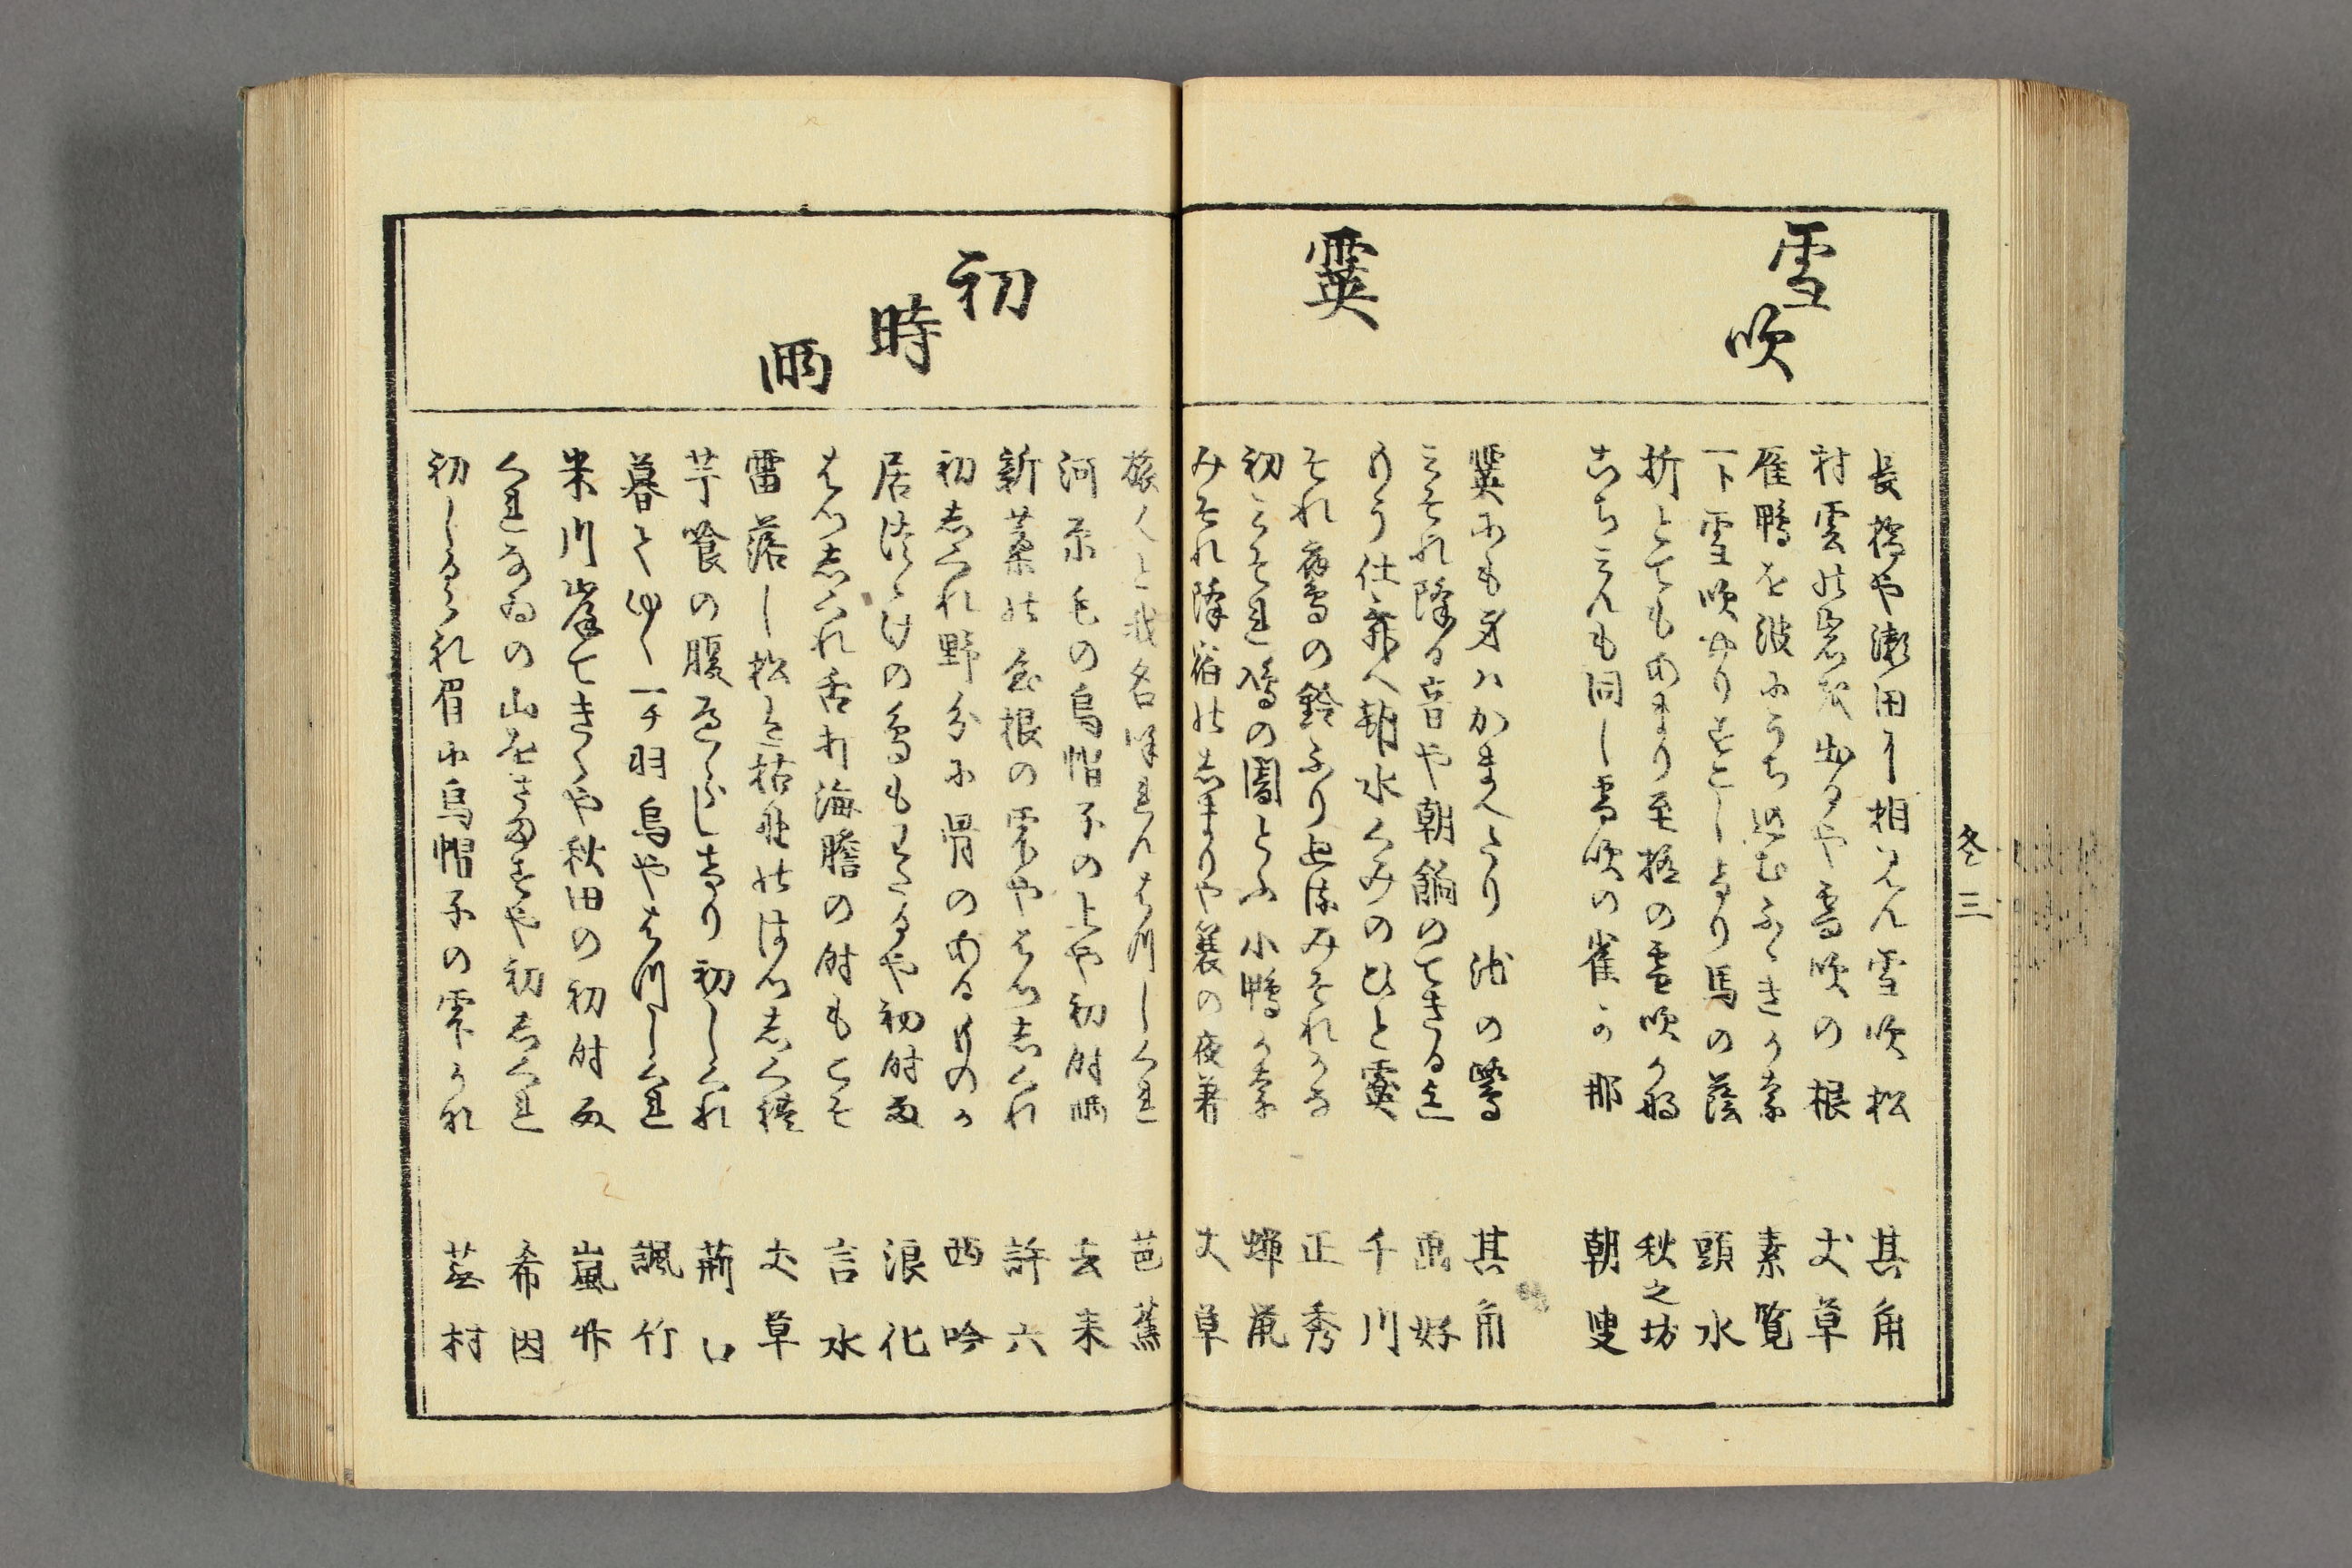 冬 三
雪吹
長橋や瀬田に相見ん雪吹松 其角
村雲の岩を出るや雪吹の根 丈草
雁鴨を波にうち込むふゝきかな 素覧
一下雪吹やりすこしたり馬の蔭 頭水
折とてもあまり至極の雪吹かな 秋之坊
あちこんも同し雪吹の雀か那 朝叟
霙
霙にも身ハかまへたり池の鷺 其角
みそれ降る音や朝餉のてきる迄 画好
もう仕舞へ朝水くみのひと霙 千川
それ鷹の鈴ふり延すみそれかな 正秀
初みそれ鳰の闇とふ小鴨かな 蝉鼠
みそれ降宿のしまりや蓑の夜着 丈草
初時雨
旅人と我名呼れんはつしくれ 芭蕉
河原毛の烏帽子の上や初時雨 去来
新藁の屋根の雫やはつしくれ 許六
初しくれ野分に骨のあるものか 西吟
居つゝけの鳥もわたるや初時雨 浪化
はつしくれ舌打海膽の時もこそ 言水
雷落し松は枯野のはつしくれ 丈草
芋喰の腹へらしけり初しくれ 荊口
暮てゆく一チ羽烏やはつしくれ 諷竹
米川岸てきくや秋田の初時雨 嵐竹
くれなゐの山をさますや初しくれ 希因
初しくれ眉に烏帽子の雫かな 蕪村